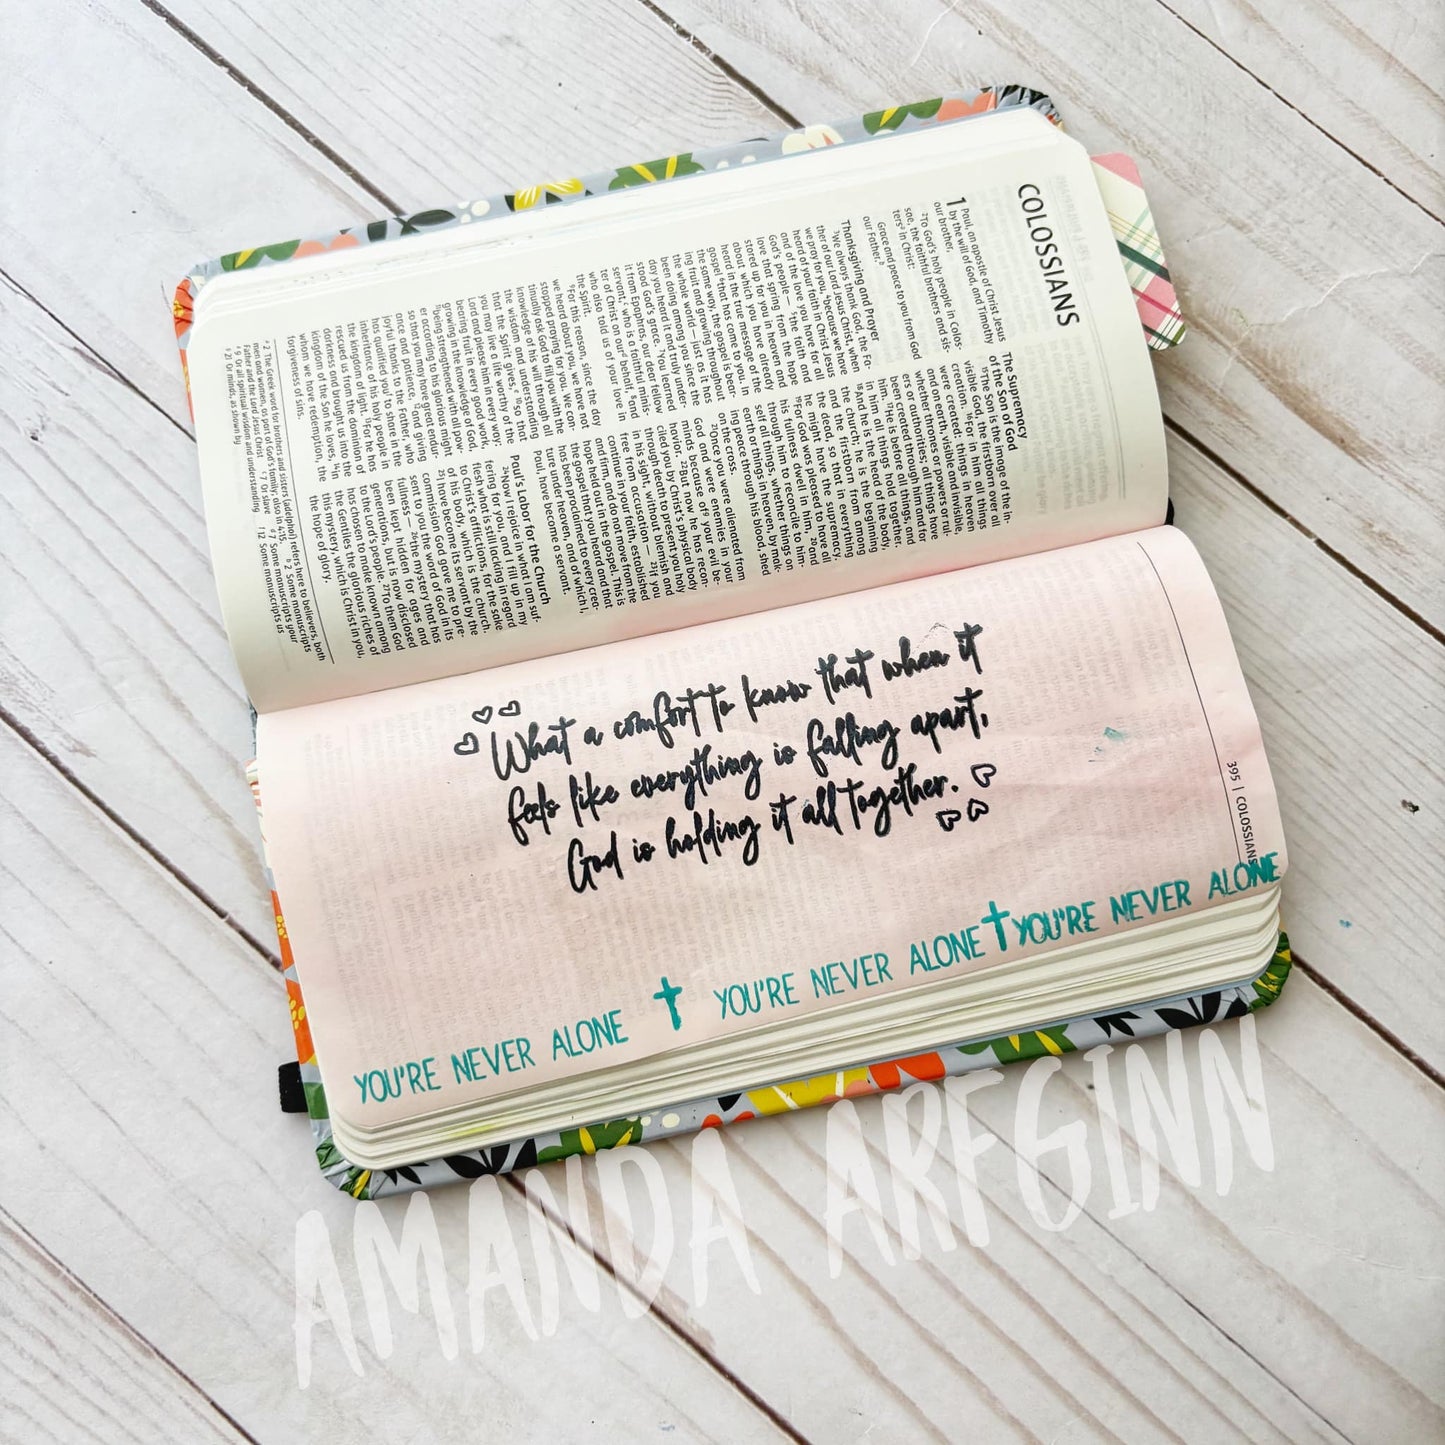 COLOSSIANS
1 Paul, an apostle of Christ Jesus
by the will of God, and Timothy
our brother,
²To God's holy people in Colos-
sae, the faithful brothers and sis-
tersᵃ in Christ:
Grace and peace to you from God
our Father.ᵇ
Thanksgiving and Prayer
³We always thank God, the Fa-
ther of our Lord Jesus Christ, when
we pray for you, ⁴because we have
heard of your faith in Christ Jesus
and of the love you have for all
God's people — ⁵the faith and
love that spring from the hope
stored up for you in heaven and
about which you have already
heard in the true message of the
gospel ⁶that has come to you. In
the same way, the gospel is bear-
ing fruit and growing throughout
the whole world — just as it has
been doing among you since the
day you heard it and truly under-
stood God's grace. ⁷You learned
it from Epaphras, our dear fellow
servant,ᶜ who is a faithful minis-
ter of Christ on ourᵈ behalf, ⁸and
who also told us of your love in
the Spirit.
⁹For this reason, since the day
we heard about you, we have not
stopped praying for you. We con-
tinually ask God to fill you with the
knowledge of his will through all
the wisdom and understanding
that the Spirit gives,ᵉ ¹⁰so that
you may live a life worthy of the
Lord and please him in every way:
bearing fruit in every good work,
growing in the knowledge of God,
¹¹being strengthened with all pow-
er according to his glorious might
so that you may have great endur-
ance and patience, ¹²and giving
joyful thanks to the Father, who
has qualified youᶠ to share in the
inheritance of his holy people in
the kingdom of light. ¹³For he has
rescued us from the dominion of
darkness and brought us into the
kingdom of the Son he loves, ¹⁴in
whom we have redemption, the
forgiveness of sins.
The Supremacy
of the Son of God
¹⁵The Son is the image of the in-
visible God, the firstborn over all
creation. ¹⁶For in him all things
were created: things in heaven
and on earth, visible and invisible,
whether thrones or powers or rul-
ers or authorities; all things have
been created through him and for
him. ¹⁷He is before all things, and
in him all things hold together.
¹⁸And he is the head of the body,
the church; he is the beginning
and the firstborn from among
the dead, so that in everything
he might have the supremacy.
¹⁹For God was pleased to have all
his fullness dwell in him, ²⁰and
through him to reconcile to him-
self all things, whether things on
earth or things in heaven, by mak-
ing peace through his blood, shed
on the cross.
²¹Once you were alienated from
God and were enemies in your
minds because of your evil be-
havior. ²²But now he has recon-
ciled you by Christ's physical body
through death to present you holy
in his sight, without blemish and
free from accusation — ²³if you
continue in your faith, established
and firm, and do not move from the
hope held out in the gospel. This is
the gospel that you heard and that
has been proclaimed to every crea-
ture under heaven, and of which I,
Paul, have become a servant.
Paul's Labor for the Church
²⁴Now I rejoice in what I am suf-
fering for you, and I fill up in my
flesh what is still lacking in regard
to Christ's afflictions, for the sake
of his body, which is the church.
²⁵I have become its servant by the
commission God gave me to pre-
sent to you the word of God in its
fullness — ²⁶the mystery that has
been kept hidden for ages and
generations, but is now disclosed
to the Lord's people. ²⁷To them God
has chosen to make known among
the Gentiles the glorious riches of
this mystery, which is Christ in you,
the hope of glory.
ᵃ 2 The Greek word for brothers and sisters (adelphoi) refers here to believers, both
men and women, as part of God's family; also in 4:15. ᵇ 2 Some manuscripts
Father and the Lord Jesus Christ ᶜ 7 Or slave ᵈ 7 Some manuscripts your
ᵉ 9 Or all spiritual wisdom and understanding ᶠ 12 Some manuscripts us
21 Or minds, as shown by
395 | COLOSSIANS
What a comfort to know that when it
feels like everything is falling apart,
God is holding it all together.
YOU'RE NEVER ALONE YOU'RE NEVER ALONE YOU'RE NEVER ALONE
AMANDA ARFGINN